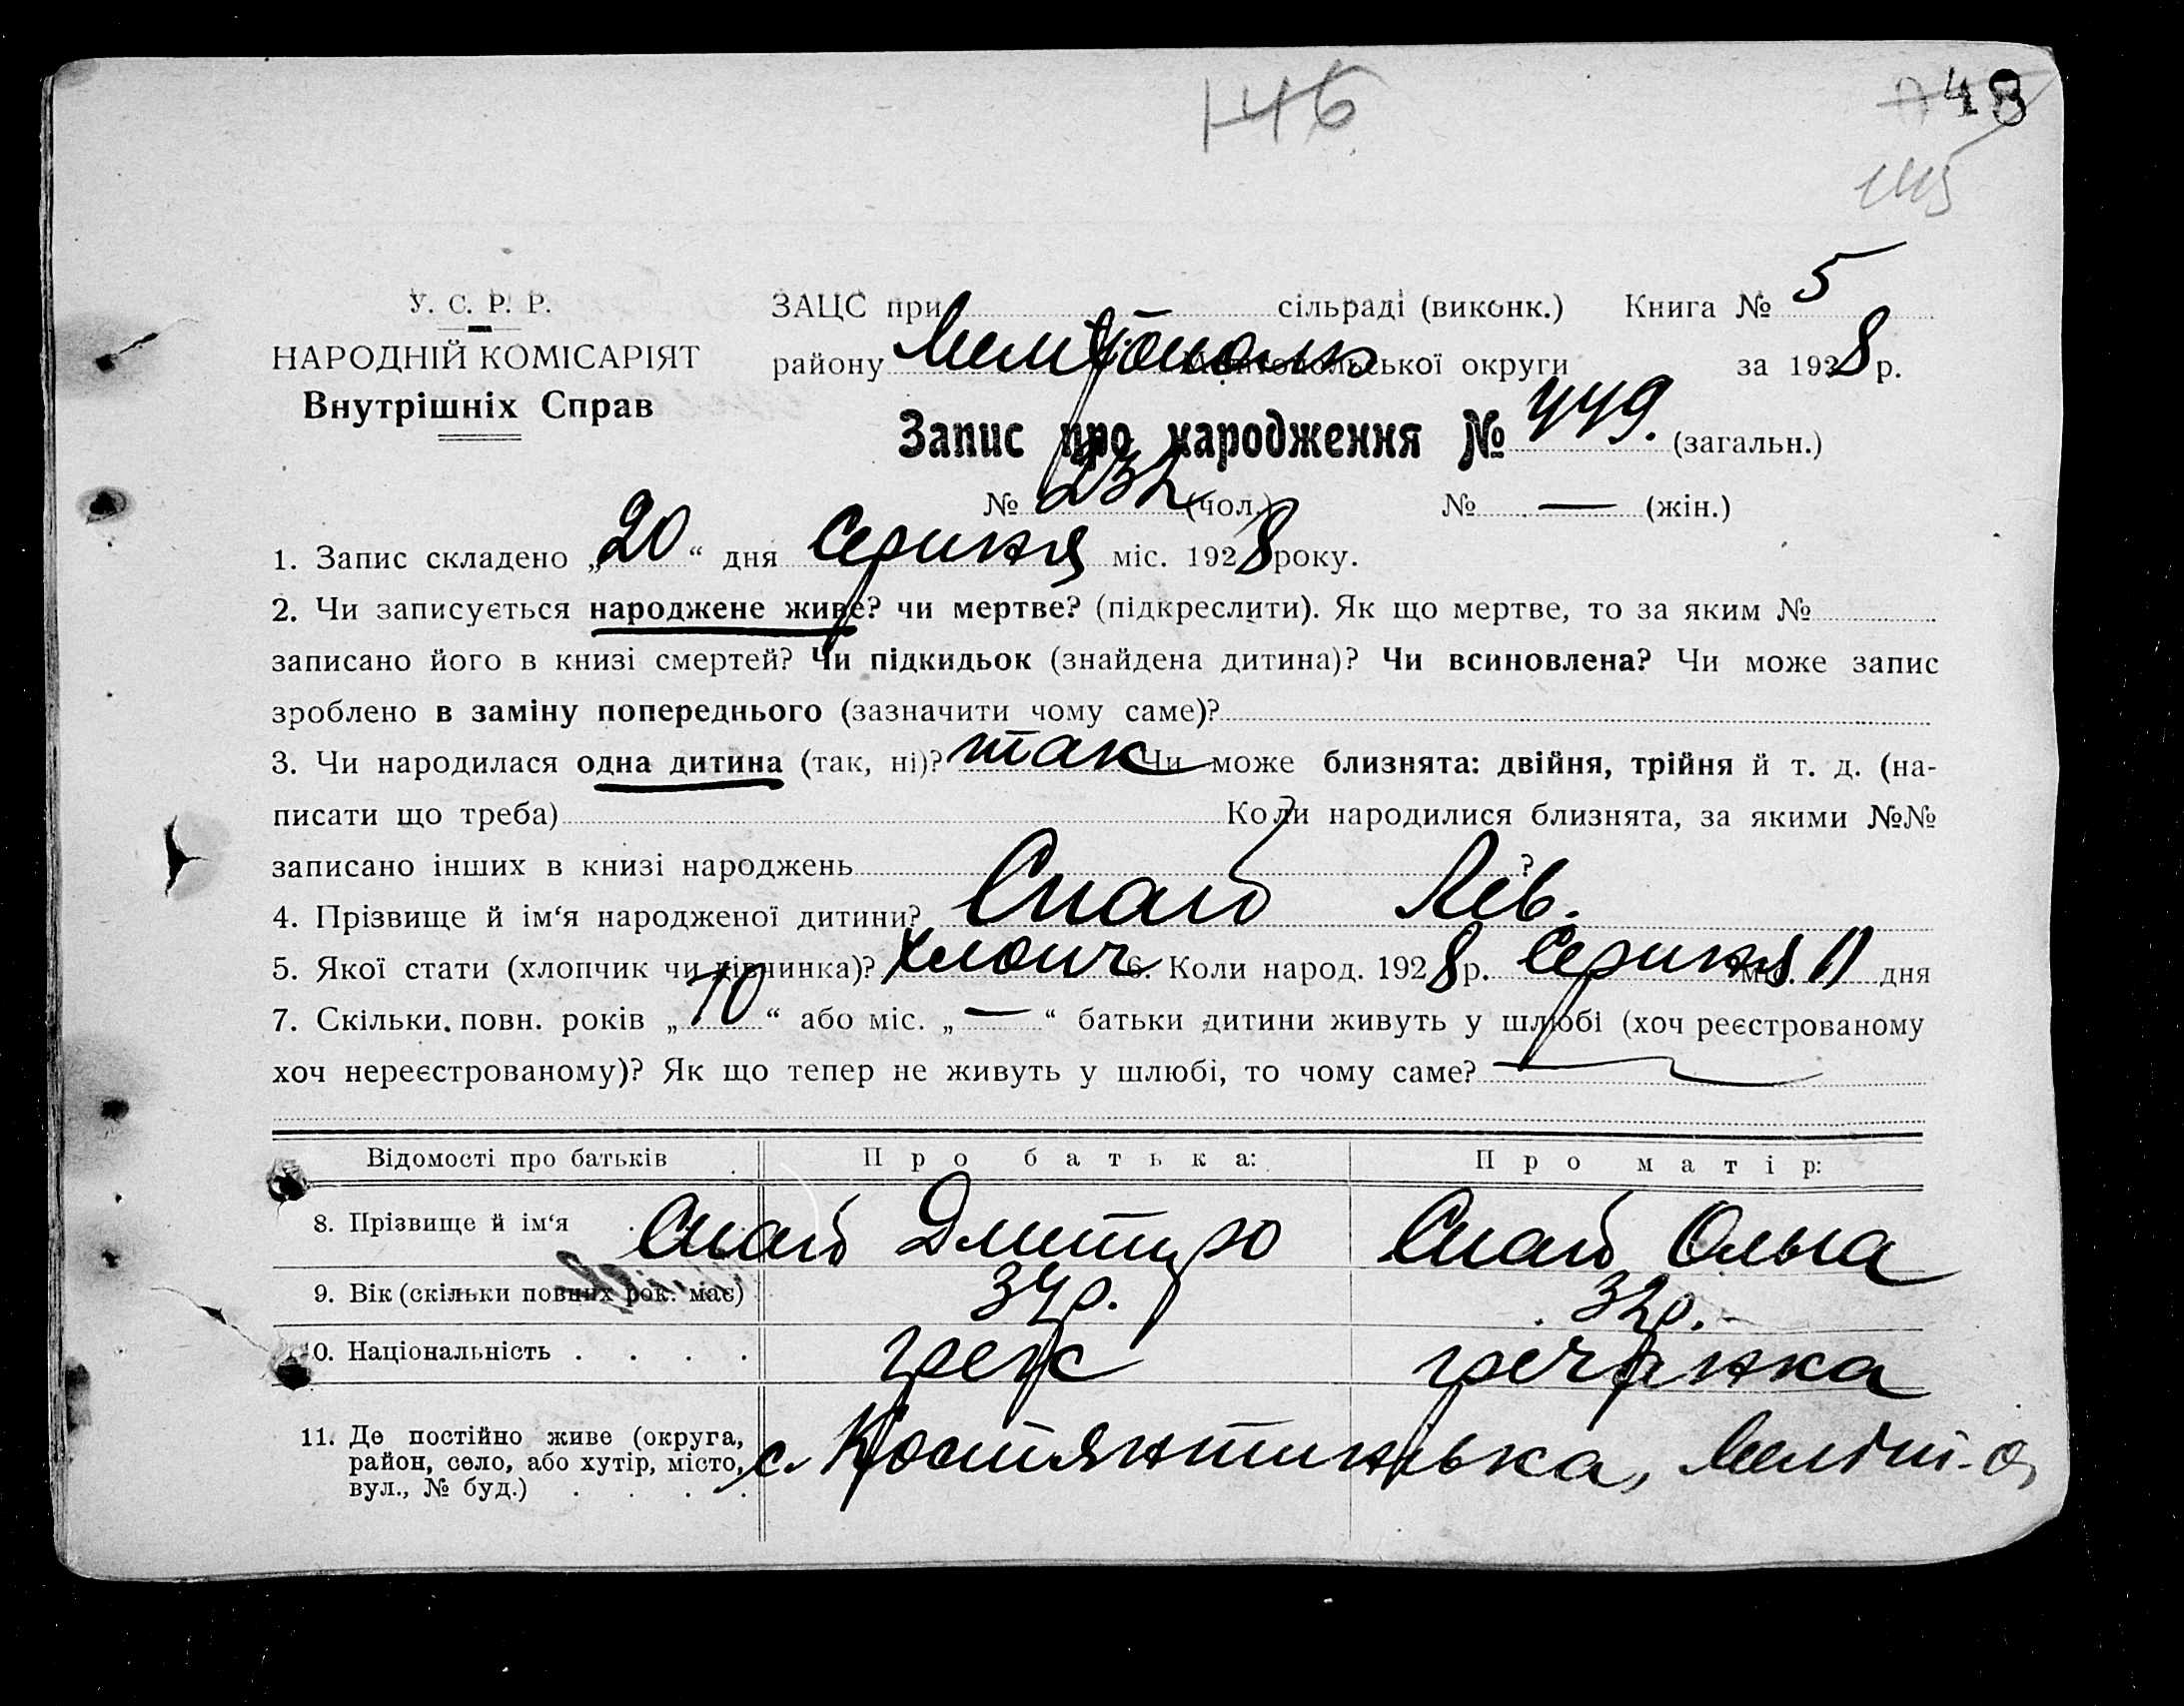 146
48
145
У. С. Р. Р.
НАРОДНІЙ КОМІСАРІЯТ
Внутрішніх Справ
ЗАЦС при сільраді (виконк.) Книга № 5
району Мелітополь Мелітопольської округи за 1928 р.
Запис про народження № 449. (загальн.)
№ 232 (чол.) № — (жін.)
1. Запис складено „20“ дня Серпня міс. 1928 року.
2. Чи записується народжене живе? чи мертве? (підкреслити). Як що мертве, то за яким №
записано його в книзі смертей? Чи підкидьок (знайдена дитина)? Чи всиновлена? Чи може запис
зроблено в заміну попереднього (зазначити чому саме)?
3. Чи народилася одна дитина (так, ні)? так Чи може близнята: двійня, трійня й т. д. (на-
писати що треба) Коли народилися близнята, за якими №№
записано інших в книзі народжень ?
4. Прізвище й ім‘я народженої дитини? Спаї Лев.
5. Якої стати (хлопчик чи дівчинка)? хлопч 6. Коли народ. 1928 р. Серпня міс. 11 дня
7. Скільки повн. років „10“ або міс. „—“ батьки дитини живуть у шлюбі (хоч реєстрованому
хоч нереєстрованому)? Як що тепер не живуть у шлюбі, то чому саме?
Відомості про батьків Про батька: Про матір:
8. Прізвище й ім‘я Спаї Дмитро Спаї Ольга
9. Вік (скільки повних рок. має) 34р. 32р.
10. Національність грек гречанка
11. Де постійно живе (округа,
район, село, або хутір, місто,
вул., № буд.) с. Костянтинівка, Меліт. о.